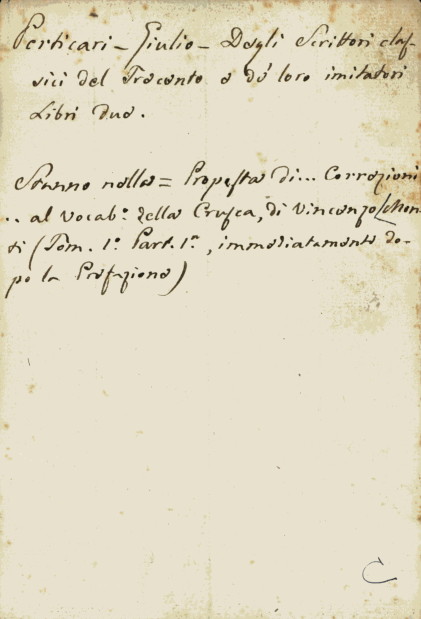 Perticari - Giulio - Degli Scrittori clas-
sici del Trecento e de' loro imitatori
Libri due.
Stanno nella = Proposta di... Correzioni
.. al vocab.º della Crusca, di Vincenzo Mon-
ti (Tom. 1.º Part. 1.ª, immediatamente do-
po la Prefazione)
C